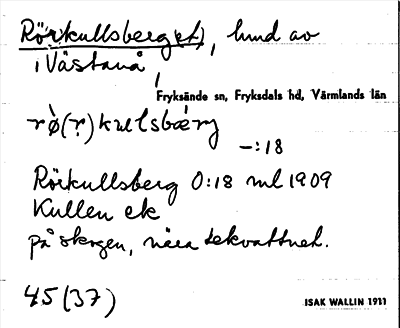 Rörkullsberg(et), hmd av
i Västanå
Fryksände sn, Fryksdals hd, Värmlands län
rø̀(r)kulsbærj
—:18
Rörkullsberg 0:18 ml 1909
Kullen ek
på skogen, nära
45 (37)
ISAK WALLIN 1911